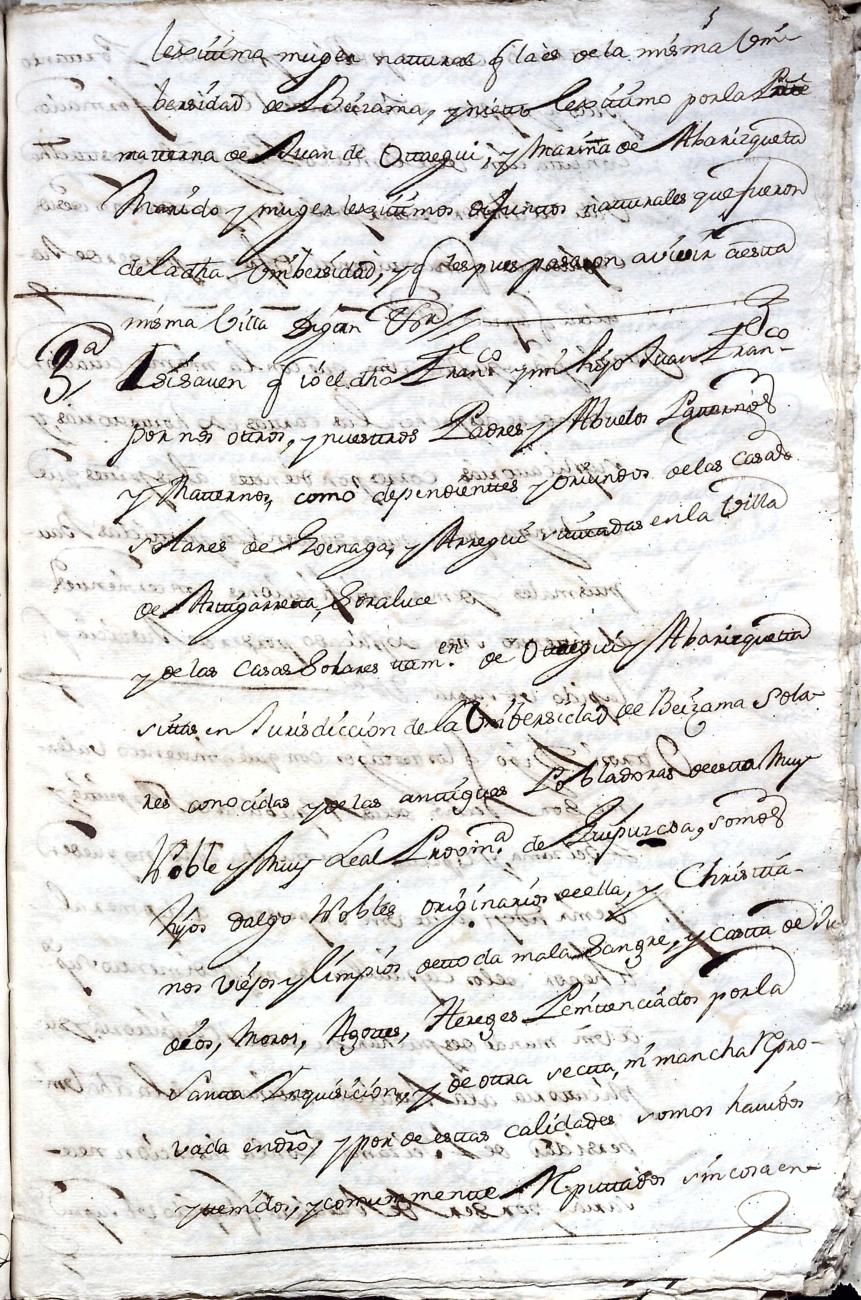 lexitima muger natural q̃ la es de la misma Vni-
bersidad de Beizama, y nieto lexitimo por la
materna de Juan de Otaegui, y Marina de Abarizqueta
Marido y muger lexitimos difuntos naturales que fueron
de la dha Vnibersidad, y q̃ despues pasaron a vivir a esta
misma Villa digan &ra//
3ª Iten si saven q̃ io el dho Franco y mi hijo Juan Franco
por nos otros, y nuestros Padres y Abuelos Paternos
y Maternos, como dependientes y oriundos de las casas
solares de Zoenaga, y Arregui sitadas en la Villa
de Soraluce
y de las Casas Solares tamen de Otaegui y Abarizquetta
sitas en Jurisdiccion de la Vnibersidad de Beizama Sola-
res conocidas y de las antiguas Pobladoras de esta Muy
Noble y Muy Leal Proginª de Guipuzcoa, somos
hijos dalgo Nobles originarios de ella, y Christia-
nos viejos y limpios de toda mala Sangre, y casta de Ju
deos, Moros, Agotes, Hereges Penitenciados por la
Santa Inquisicion, y de otra secta, ni mancha Repro-
vada en dro, y por de estas calidades somos havidos
y tenidos, y comunmente Reputados sin cosa en